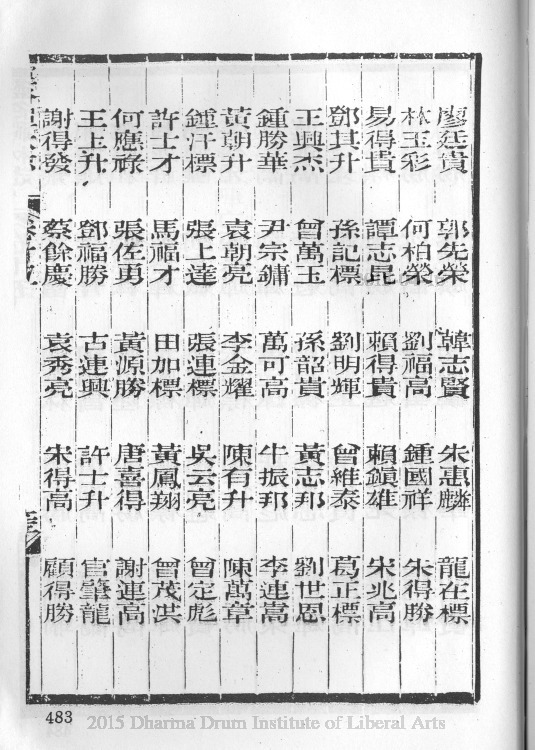 廖廷貴 郭先榮 韓志賢 朱惠麟 龍在標
林玉彩 何柏榮 劉福高 鍾國祥 朱得勝
易得貴 譚志昆 賴得貴 賴鎮雄 宋兆高
鄧其升 孫記標 劉明輝 曾維泰 葛正標
王興杰 曾萬玉 孫韶貴 黃志邦 劉世恩
鍾勝華 尹宗鏞 萬可高 牛振邦 李連嵩
黃朝升 袁朝亮 李金耀 陳有升 陳萬章
鍾汗標 張上達 張連標 吳云亮 曾定彪
許士才 馬福才 田加標 黃鳳翔 曾茂洪
何應祿 張佐勇 黃源勝 唐喜得 謝連高
王上升 鄧福勝 古連興 許士升 官肇龍
謝得發 蔡餘慶 袁秀亮 朱得高 顧得勝
483
2015 Dharma Drum Institute of Liberal Arts